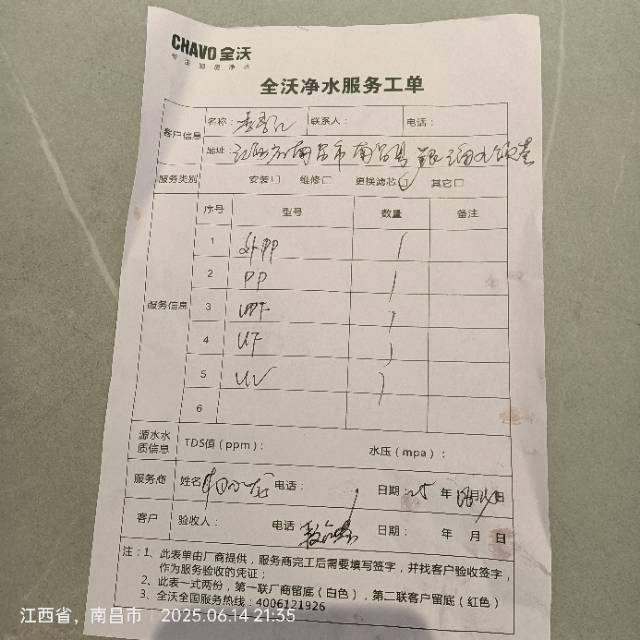 CHAVO 全沃
专注加您净水
全沃净水服务工单
客户信息 名称： 联系人： 电话：
地址： 江西省南昌市南昌县
服务类别 安装□ 维修□ 更换滤芯□ 其它□
服务信息 序号 型号 数量 备注
1 外PP 1
2 PP 1
3 1
4 UF 1
5 UV 1
6
源水水质信息 TDS值（ppm）： 水压（mpa）：
服务商 姓名 电话： 日期：25 年 月 日
客户 验收人： 电话 日期： 年 月 日
注：1、此表单由厂商提供，服务商完工后需要填写签字，并找客户验收签字，
作为服务验收的凭证；
2、此表一式两份，第一联厂商留底（白色），第二联客户留底（红色）
3、全沃全国服务热线：4006121926
江西省，南昌市 2025.06.14 21:35